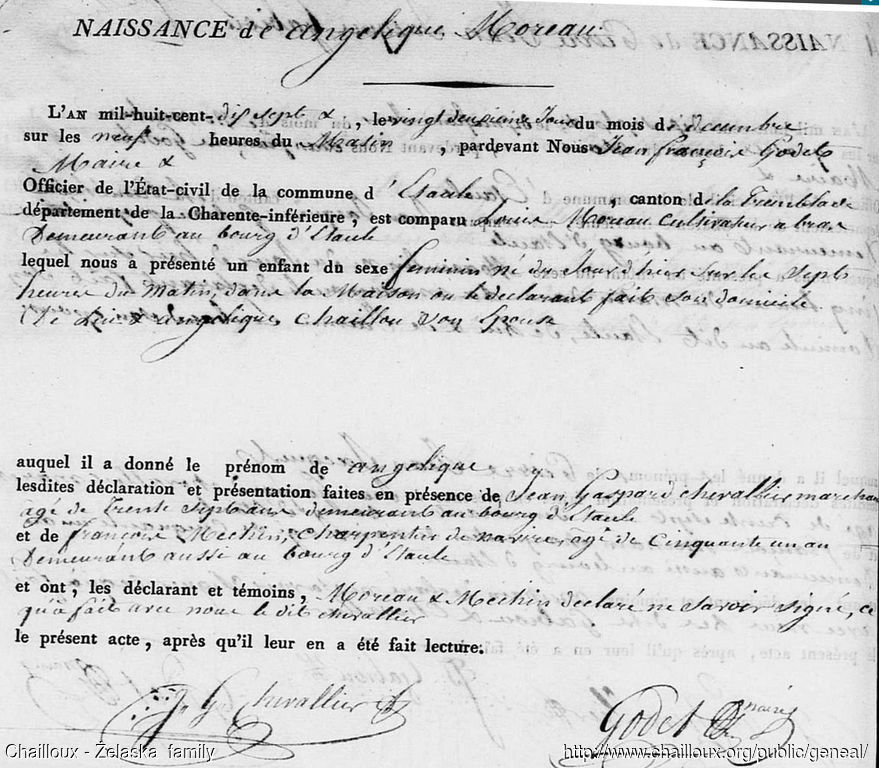 NAISSANCE de angelique Moreau
L'AN mil-huit-cent-dix sept &, le vingt deuxieme Jour du mois de decembre
sur les neuf heures du Matin, pardevant Nous Jean françois Godet
Maire &
Officier de l'État-civil de la commune d'Etaule, canton de la Tremblade
département de la Charente-inférieure, est comparu Louis Moreau Cultivateur a bras
Demeurant au bourg d'Etaule
lequel nous a présenté un enfant du sexe feminin né du Jour d'hier sur les Sept
heures du Matin, dans la Maison ou le declarant fait son domicile
De Lui & angelique Chaillou son Epouse
auquel il a donné le prénom de angelique
lesdites déclaration et présentation faites en présence de Jean Gaspard chevallier marchand
agé de Trente Sept ans demeurant au bourg d'Etaule
et de françois Mechin, Charpentier de navire, agé de Cinquante un an
Demeurant aussi au bourg d'Etaule
et ont, les déclarant et témoins, Moreau & Mechin declaré ne savoir signé, ce
qu'a fait avec nous le dit chevallier
le présent acte, après qu'il leur en a été fait lecture.
J G Chevallier
Godet maire
Chailloux - Želaska family
http://www.chailloux.org/public/geneal/